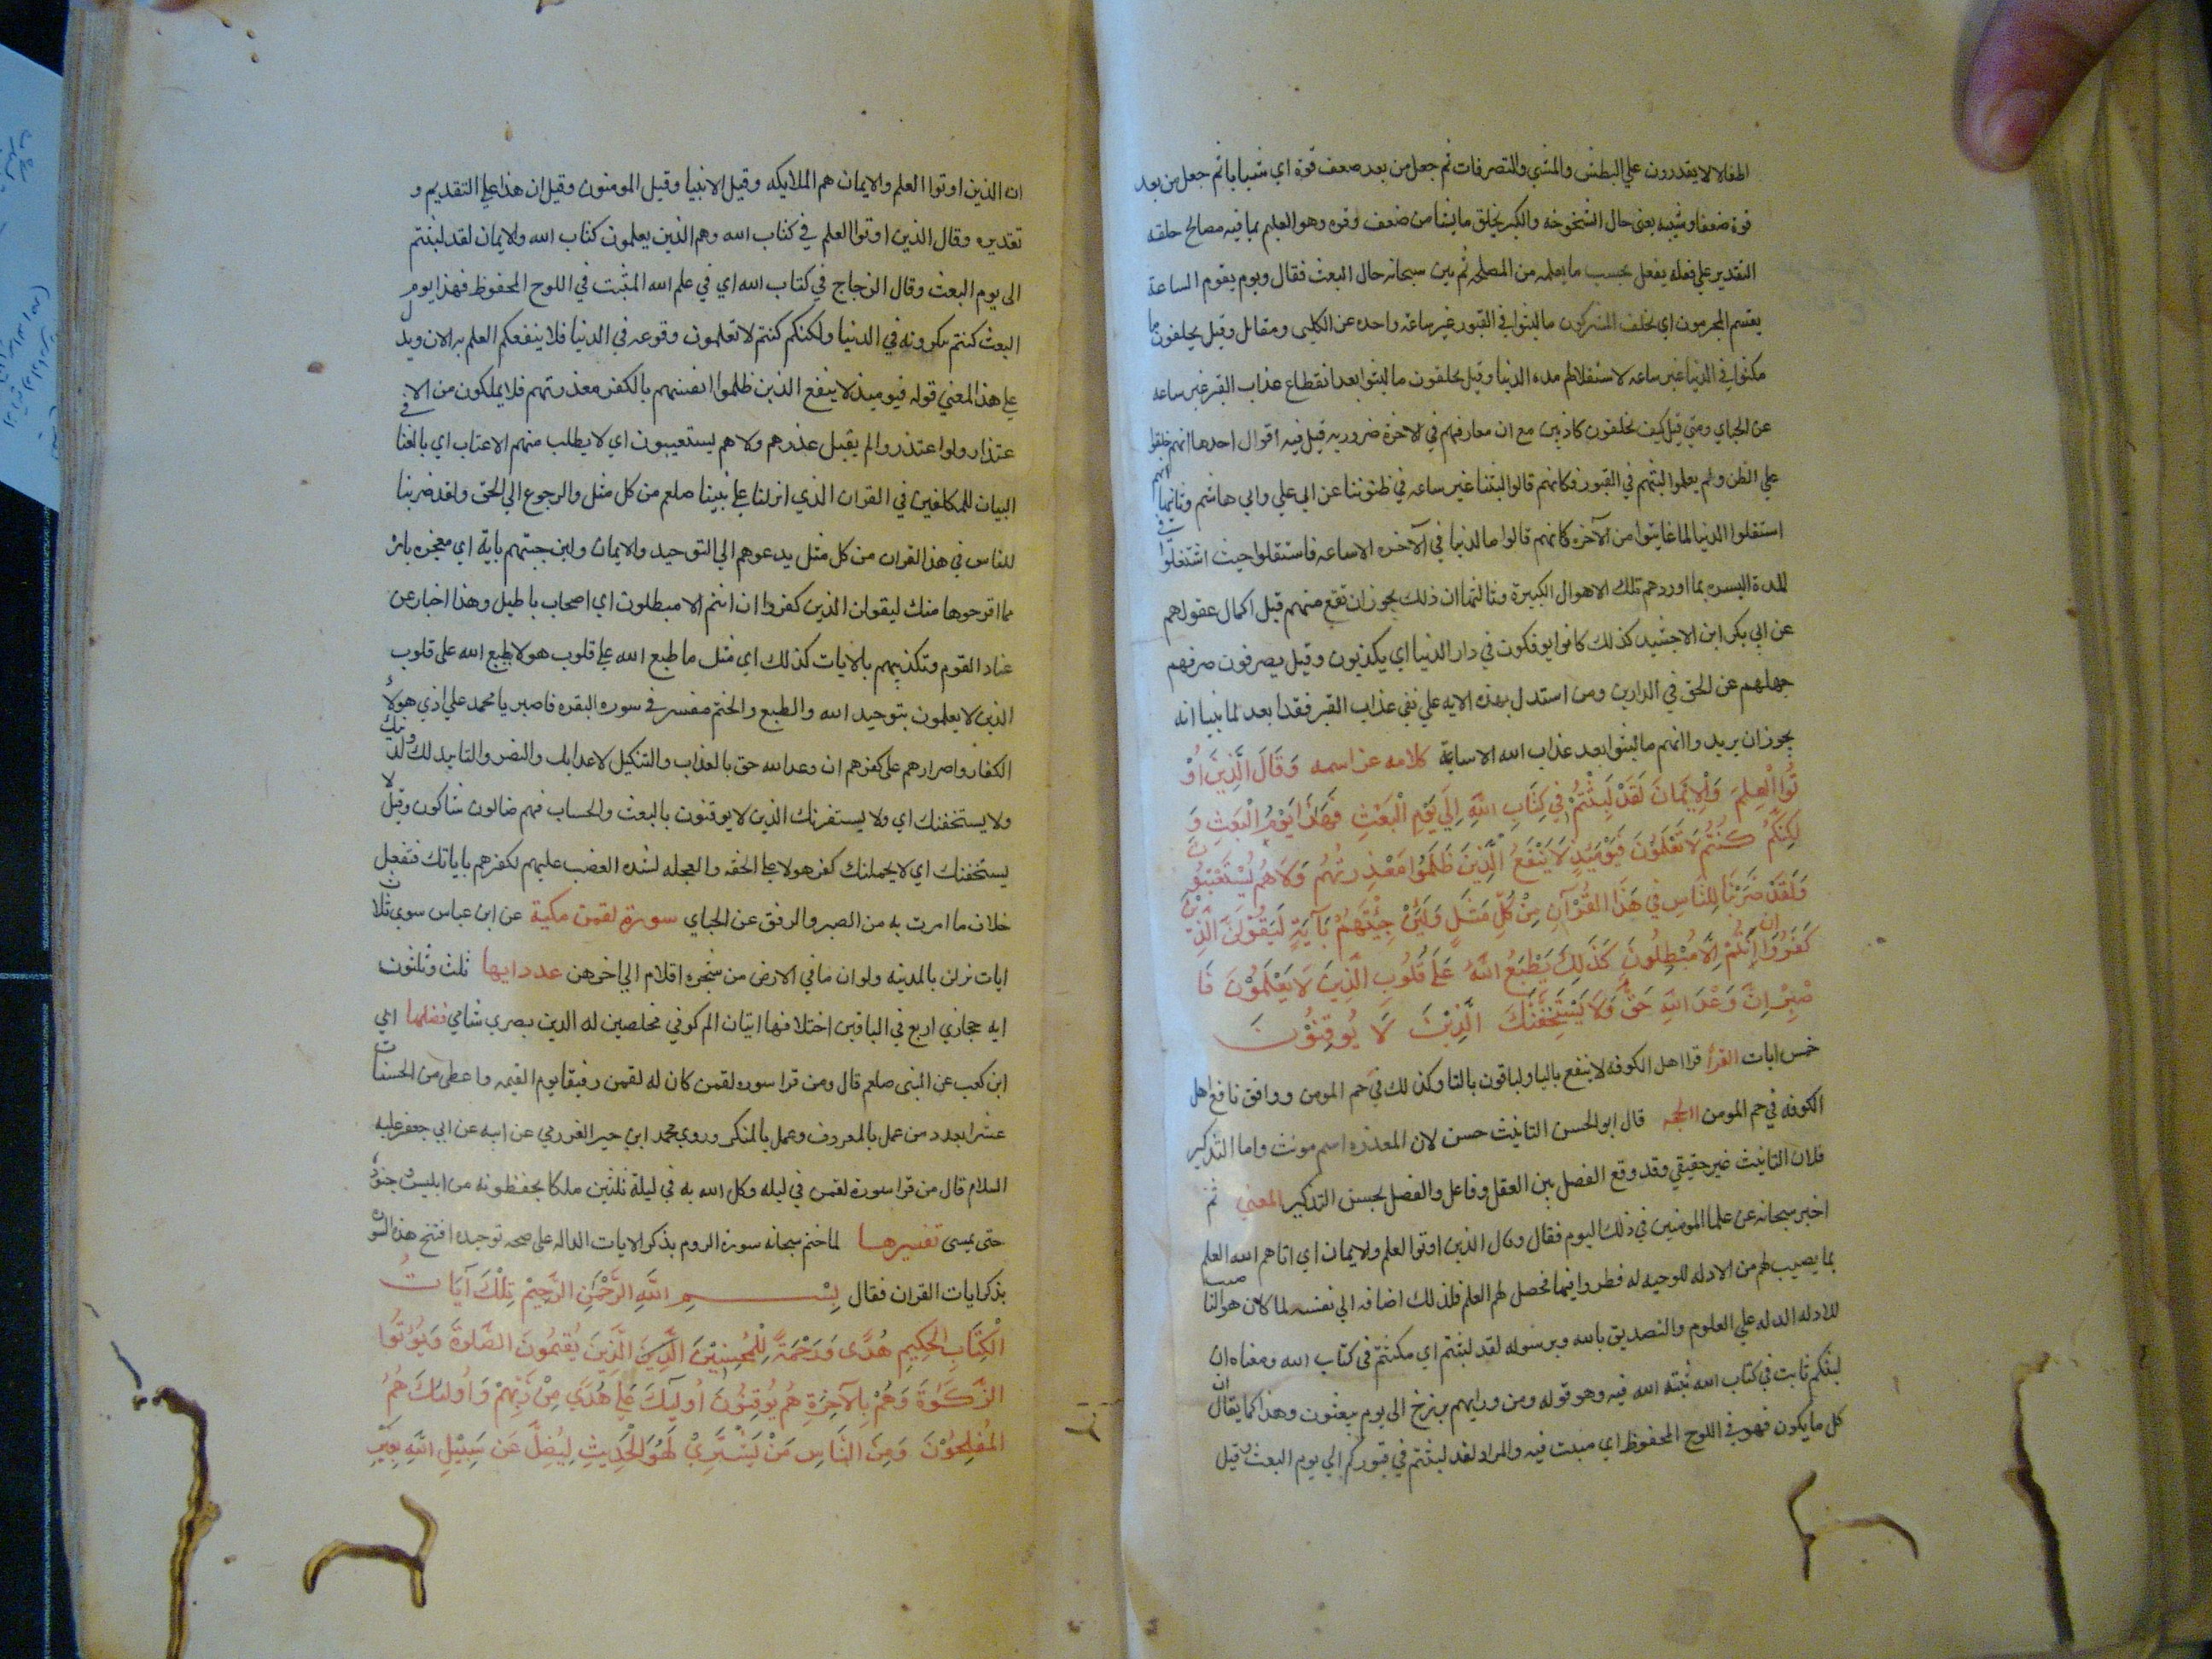 اطفالا لا يقدرون علي البطش والمشي والتصرفات ثم جعل من بعد ضعف قوة اي شبابا ثم جعل من بعد
قوة ضعفا وشيبه يعني حال الشيخوخه والكبر يخلق ما يشا من ضعف وقوه وهو العليم بما فيه مصالح خلقه
القدير علي فعله يفعل بحسب ما يعلمه من المصلحه ثم بين سبحانه حال البعث فقال ويوم يقوم الساعة
يقسم المجرمون اي يحلف المشركون ما لبثوا في القبور غير ساعة واحده عن الكلبي ومقاتل وقيل يحلفون ما
مكثوا في الدنيا غير ساعه لاستقلالهم مده الدنيا وقيل يحلفون ما لبثوا بعد انقطاع عذاب القبر غير ساعه
عن الجباي ومتي قيل كيف يحلفون كاذبين مع ان معارفهم في الاخرة ضروريه قيل فيه اقوال احدها انهم حلفوا
علي الظن ولم يعلموا لبثهم في القبور فكانهم قالوا لبثنا غير ساعه في ظنوننا عن ابي علي وابي هاشم وثانيها انهم
استقلوا الدنيا لما عاينوا من الآخره كانهم قالوا ما الدنيا في الآخره الا ساعه فاستقلوا حيث اشتغلوا في
المدة اليسره بما اوردهم تلك الاهوال الكبيرة وثالثها ان ذلك يجوز ان تقع منهم قبل اكمال عقولهم
عن ابي بكر ابن الاخشيد كذلك كانوا يوفكون في دار الدنيا اي يكذبون وقيل يصرفون صرفهم
جهلهم عن الحق في الدارين ومن استدل بهذه الايه علي نفي عذاب القبر فقد ابعد لما بينا انه
يجوز ان يريدوا انهم ما لبثوا بعد عذاب الله الا ساعة كلامه عز اسمه وَقَالَ الَّذِينَ اُوْ
تُوا الْعِلْمَ وَالْاِيْمَانَ لَقَدْ لَبِثْتُمْ فِي كِتَابِ اللهِ اِلَي يَوْمِ الْبَعْثِ فَهَذَا يَوْمُ الْبَعْثِ وَ
لَكِنَّكُمْ كُنْتُمْ لَا تَعْلَمُوْنَ فَيَوْمَئِذٍ لَا يَنْفَعُ الَّذِيْنَ ظَلَمُوا مَعْذِرَتُهُمْ وَلَا هُمْ يُسْتَعْتَبُوْنَ
وَلَقَدْ ضَرَبْنَا لِلنَّاسِ فِي هَذَا الْقُرْآنِ مِنْ كُلِّ مَثَلٍ وَلَئِنْ جِئْتَهُمْ بِآيَةٍ لَيَقُوْلَنَّ الَّذِيْنَ
كَفَرُوْا اِنْ اَنْتُمْ اِلَّا مُبْطِلُوْنَ كَذَلِكَ يَطْبَعُ اللهُ عَلَي قُلُوْبِ الَّذِيْنَ لَا يَعْلَمُوْنَ فَا
صْبِرْ اِنَّ وَعْدَ اللهِ حَقٌّ وَلَا يَسْتَخِفَّنَّكَ الَّذِيْنَ لَا يُوْقِنُوْنَ
خمس ايات القرأ قرا اهل الكوفه لا ينفع باليا والباقون بالتا وكذلك في حم المومن ووافق نافع اهل
الكوفه في حم المومن الحجه قال ابو الحسن التانيث حسن لان المعذره اسم مونث واما التذكير
فلان التانيث غير حقيقي وقد وقع الفصل بين العقل وفاعل والفصل بحسن التذكير المعني ثم
اخبر سبحانه عن علما المومنين في ذلك اليوم فقال وقال الذين اوتوا العلم والايمان اي اتاهم الله العلم
بما يصيب لهم من الادله الموجبه له فنظروا فيها فحصل لهم العلم فلذلك اضافه الي نفسه لما كان هو الناصب
للادله الداله علي العلوم والتصديق بالله وبرسوله لقد لبثتم اي مكثتم في كتاب الله ومعناه ان
لبثكم ثابت في كتاب الله ثبته الله فيه وهو قوله ومن ورايهم برزخ الي يوم يبعثون وهذا كما يقال ان
كل ما يكون فهو في اللوح المحفوظ اي مثبت فيه والمراد لقد لبثتم في قبوركم الي يوم البعث وقيل
ان الذين اوتوا العلم والايمان هم الملايكه وقيل الانبيا وقيل المومنون وقيل ان هذا علي التقديم و
تقديره وقال الذين اوتوا العلم في كتاب الله وهم الذين يعلمون كتاب الله والايمان لقد لبثتم
الي يوم البعث وقال الزجاج في كتاب الله اي في علم الله المثبت في اللوح المحفوظ فهذا يوم
البعث كنتم تنكرونه في الدنيا ولكنكم كنتم لا تعلمون وقوعه في الدنيا فلا ينفعكم العلم به الان ويدل
علي هذا المعني قوله فيوميذ لا ينفع الذين ظلموا انفسهم بالكفر معذرتهم فلا يملكون من الا
عتذار ولو اعتذروا لم يقبل عذرهم ولا هم يستعتبون اي لا يطلب منهم الاعتاب اي بالغنا في
البيان للمكلفين في القران الذي انزلنا علي نبينا صلعم من كل مثل والرجوع الي الحق ولقد ضربنا
للناس في هذا القران من كل مثل يدعوهم الي التوحيد والايمان ولين جيتهم باية اي معجزه باهره
مما اقترحوها منك ليقولن الذين كفروا ان انتم الا مبطلون اي اصحاب باطيل وهذا اخبار عن
عناد القوم وتكذيبهم بالايات كذلك اي مثل ما طبع الله علي قلوب هولا يطبع الله علي قلوب
الذين لا يعلمون بتوحيد الله والطبع والختم مفسر في سوره البقره فاصبر يا محمد علي اذي هولاء
الكفار واصرارهم علي كفرهم ان وعد الله حق بالعذاب والتنكيل لاعدايك والنصر والتاييد لك ولدينك
ولا يستخفنك اي ولا يستفزنك الذين لا يوقنون بالبعث والحساب فهم ضالون شاكون وقيل لا
يستخفنك اي لا يحملنك كفر هولا علي الخفه والعجله لشده الغضب عليهم لكفرهم باياتك فتفعل
خلاف ما امرت به من الصبر والرفق عن الجباي سورة لقمن مكية عن ابن عباس سوي ثلاث
ايات نزلن بالمدينه ولو ان ما في الارض من شجره اقلام الي اخرهن عدد ايها ثلث وثلثون
ايه حجازي اربع في الباقين اختلافها ايتان الم كوفي مخلصين له الدين بصري شامي فضلها ابي
ابن كعب عن النبي صلعم قال ومن قرا سوره لقمن كان له لقمن رفيقا يوم القيمه واعطي من الحسنات
عشرا بعدد من عمل بالمعروف وعمل بالمنكر وروي محمد ابن جبر الغررمي عن ابيه عن ابي جعفر عليه
السلام قال من قرا سورة لقمن في ليله وكل الله به في ليلة ثلثين ملكا يحفظونه من ابليس وجنوده
حتي يمسي تفسيرها لما ختم سبحانه سورة الروم بذكر الايات الداله علي صحه توحيده افتتح هذه السوره
بذكر ايات القران فقال بِسْمِ اللهِ الرَّحْمَنِ الرَّحِيْمِ تِلْكَ آيَاتُ
الْكِتَابِ الْحَكِيْمِ هُدًى وَرَحْمَةً لِلْمُحْسِنِيْنَ الَّذِيْنَ يُقِيْمُوْنَ الصَّلوةَ وَيُؤْتُوْنَ
الزَّكَوةَ وَهُمْ بِالآخِرَةِ هُمْ يُوْقِنُوْنَ اُولَئِكَ عَلَي هُدًي مِنْ رَبِّهِمْ وَاُولَئِكَ هُمُ
الْمُفْلِحُوْنَ وَمِنَ النَّاسِ مَنْ يَشْتَرِيْ لَهْوَ الْحَدِيْثِ لِيُضِلَّ عَنْ سَبِيْلِ اللهِ بِغَيْرِ